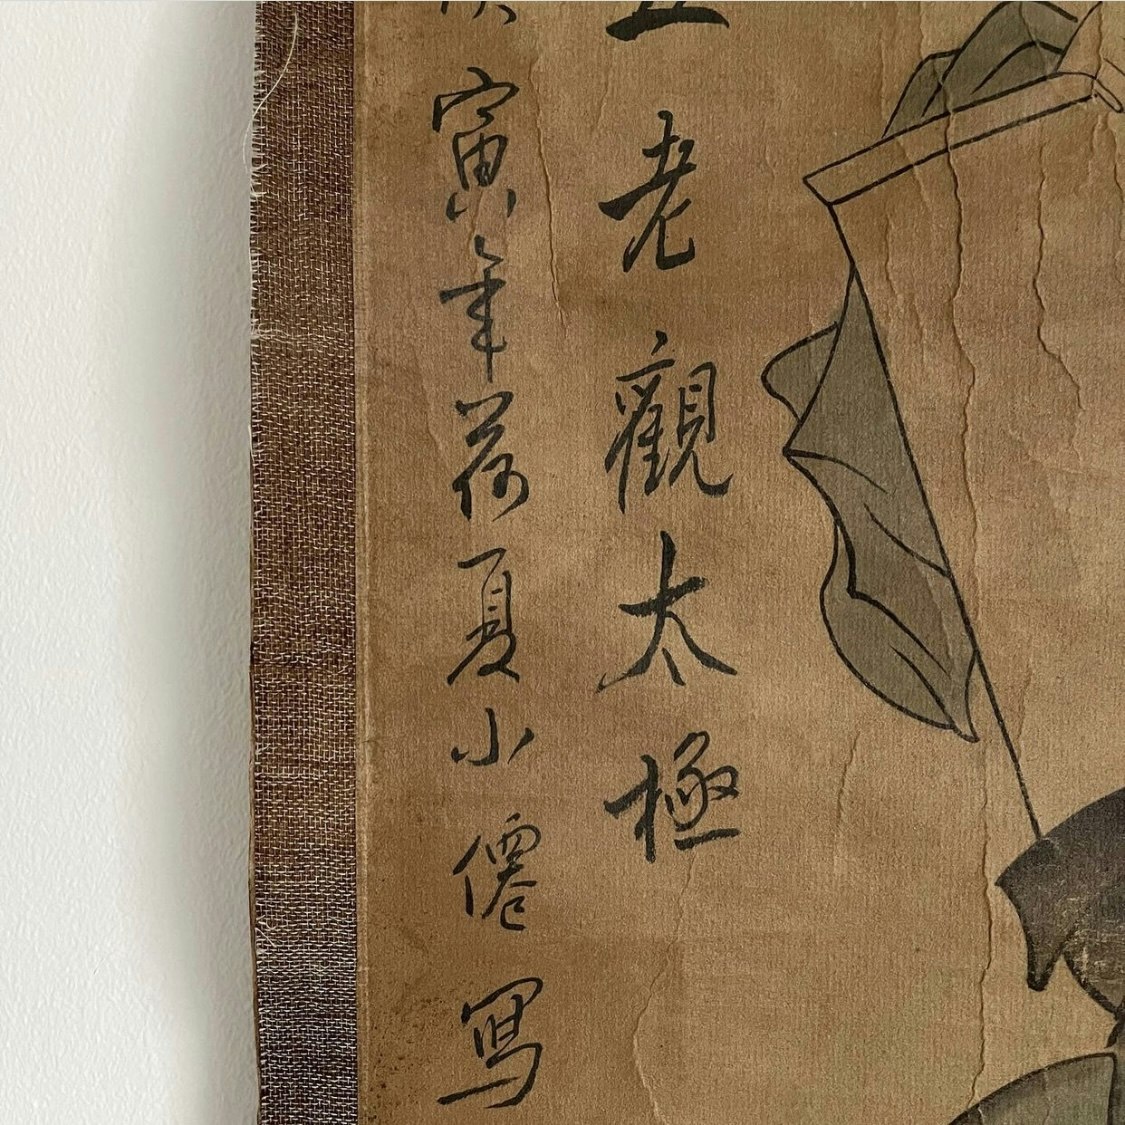 老觀太極
寅年荷夏小僊寫